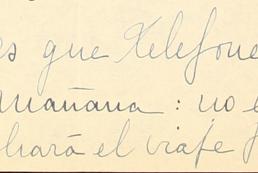 es que Telefone
mañana: no e
hará el viaje